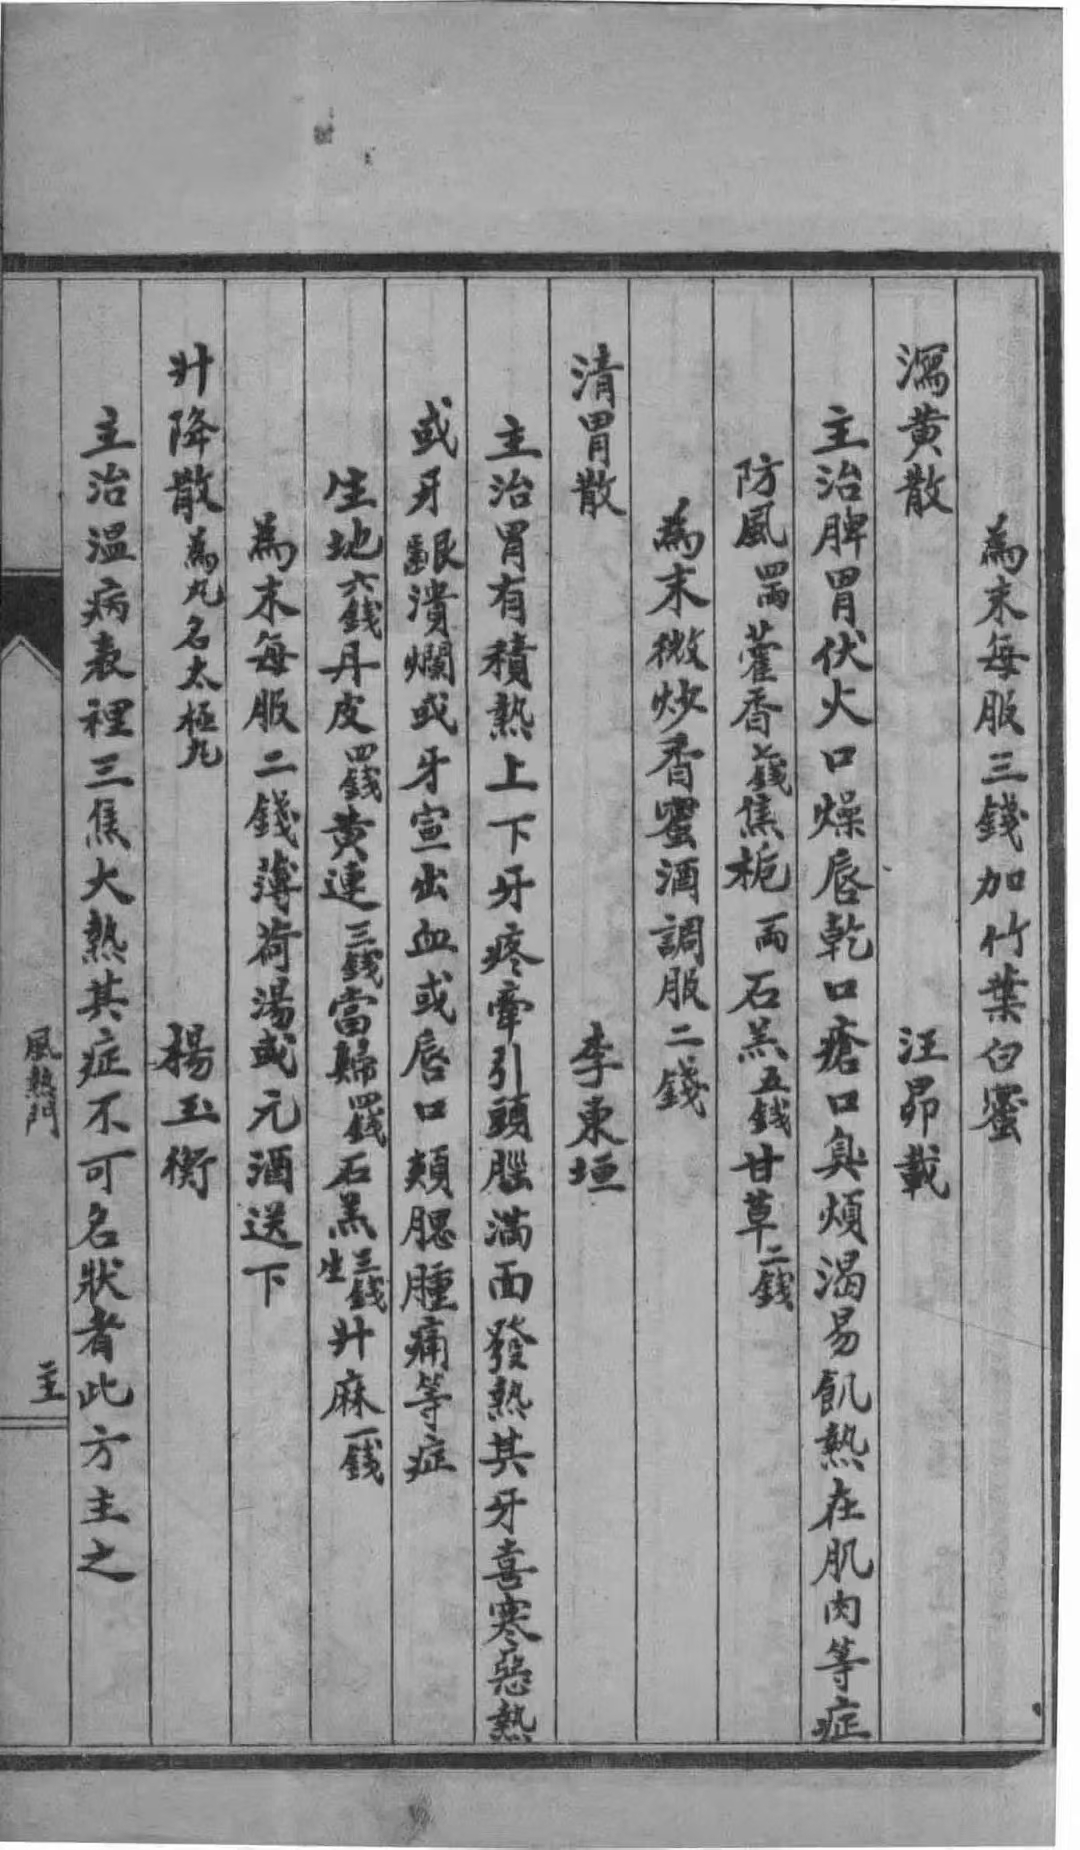 為末每服三錢加竹葉白蜜
瀉黄散　汪昂載
主治脾胃伏火口燥唇乾口瘡口臭煩渴易飢熱在肌肉等症
防風四兩藿香七錢焦梔一兩石羔五錢甘草二錢
為末微炒香蜜酒調服二錢
清胃散　李東垣
主治胃有積熱上下牙疼牽引頭腦滿面發熱其牙喜寒惡熱
或牙齦潰爛或牙宣出血或唇口頰腮腫痛等症
生地六錢丹皮四錢黄連三錢當歸四錢石羔生三錢升麻一錢
為末每服二錢薄荷湯或元酒送下
升降散為丸名太極丸　楊玉衡
主治温病表裡三焦大熱其症不可名狀者此方主之
風熱門